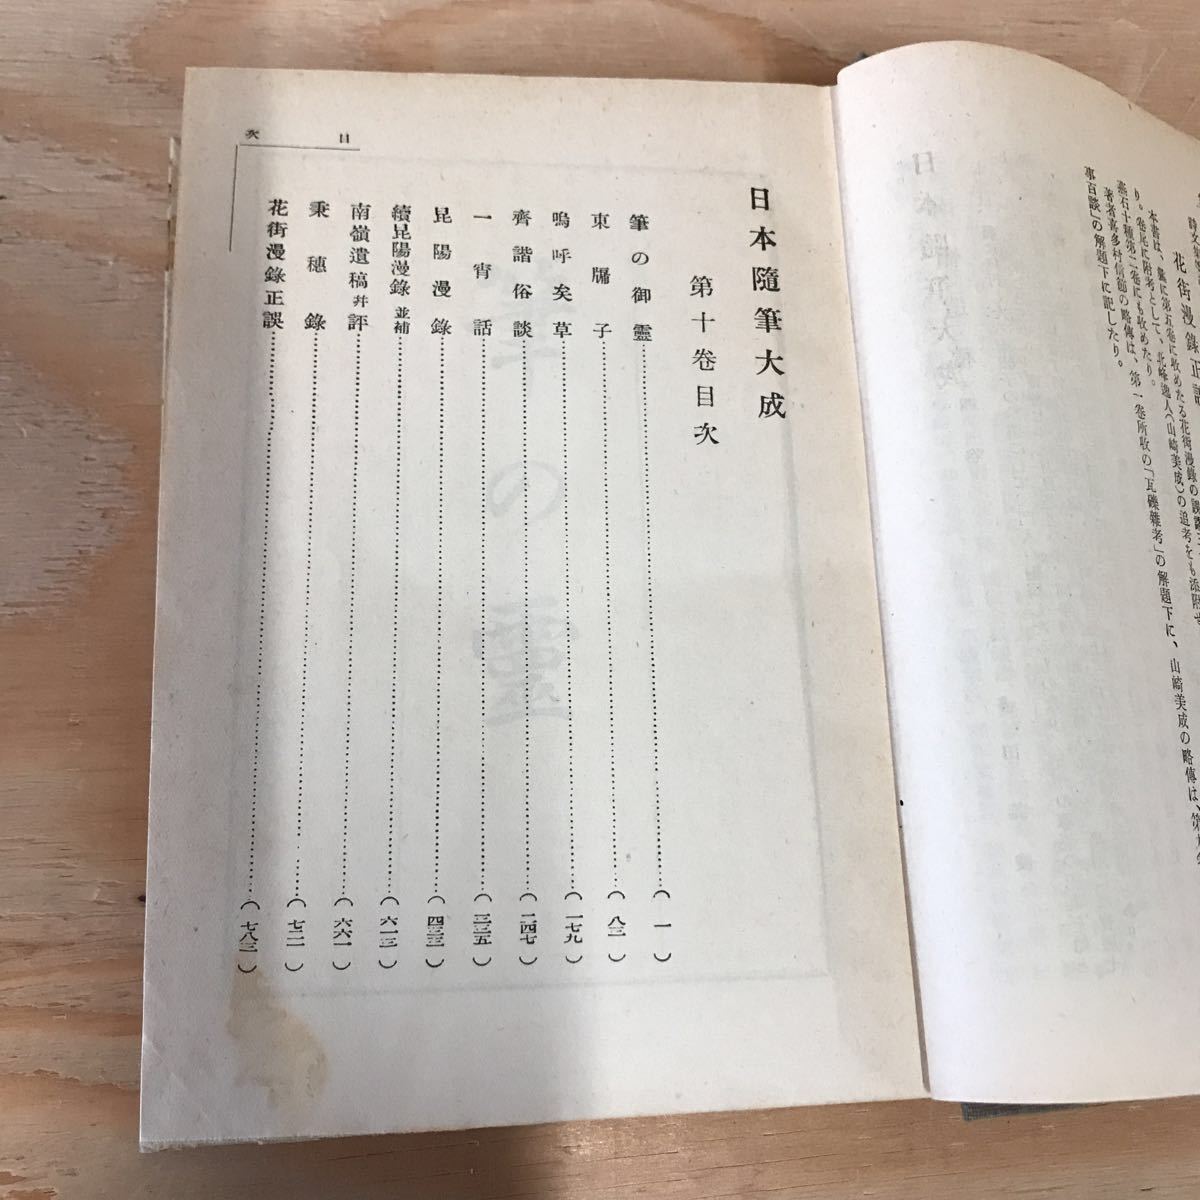 花街漫錄正誤
本書は、嚢に第五卷に收めたる花街漫錄の誤謬
り。卷尾に附考として、北峰逸人(山崎美成)の追考をも添附せ
燕石十種第二卷にも收めたり。
著者喜多村信節の略傳は、第一卷所收の「瓦礫雜考」の解題下に、山崎美成の略傳は、第九卷
事百談」の解題下に記したり。
目次
日本隨筆大成
第十卷目次
筆の御靈……(一)
東牖子……(八三)
嗚呼矣草……(一七九)
齊諧俗談……(二四七)
一宵話……(三三五)
昆陽漫錄……(四三三)
續昆陽漫錄並補……(六一三)
南嶺遺稿幷評……(六六一)
秉穗錄……(七二一)
花街漫錄正誤……(七八三)